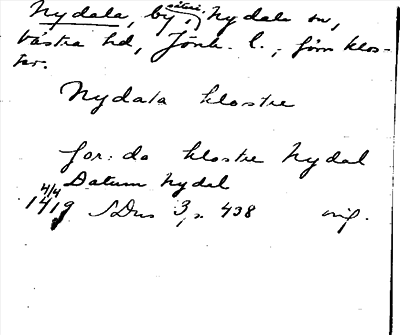 Nydala, by, säteri, Nydala sn,
Västra hd, Jönk. l.; förr klos-
ter.
Nydala kloster
for: do kloster Nydal
Datum Nydal
4/4
1419 SDns 3, s. 438 orig.